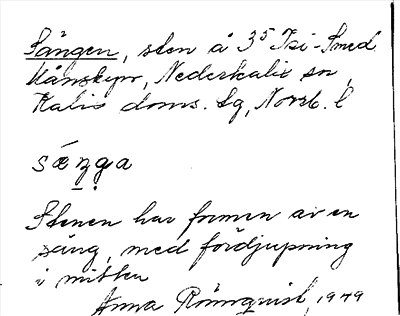 Sängen, sten å 3⁵ Isi-Smed
Månskyrr, Nederkalix sn,
Kalix doms. lg, Norrb. l
sæŋga
Stenen har formen av en
säng, med fördjupning
i mitten
Anna Rönnqvist, 1979